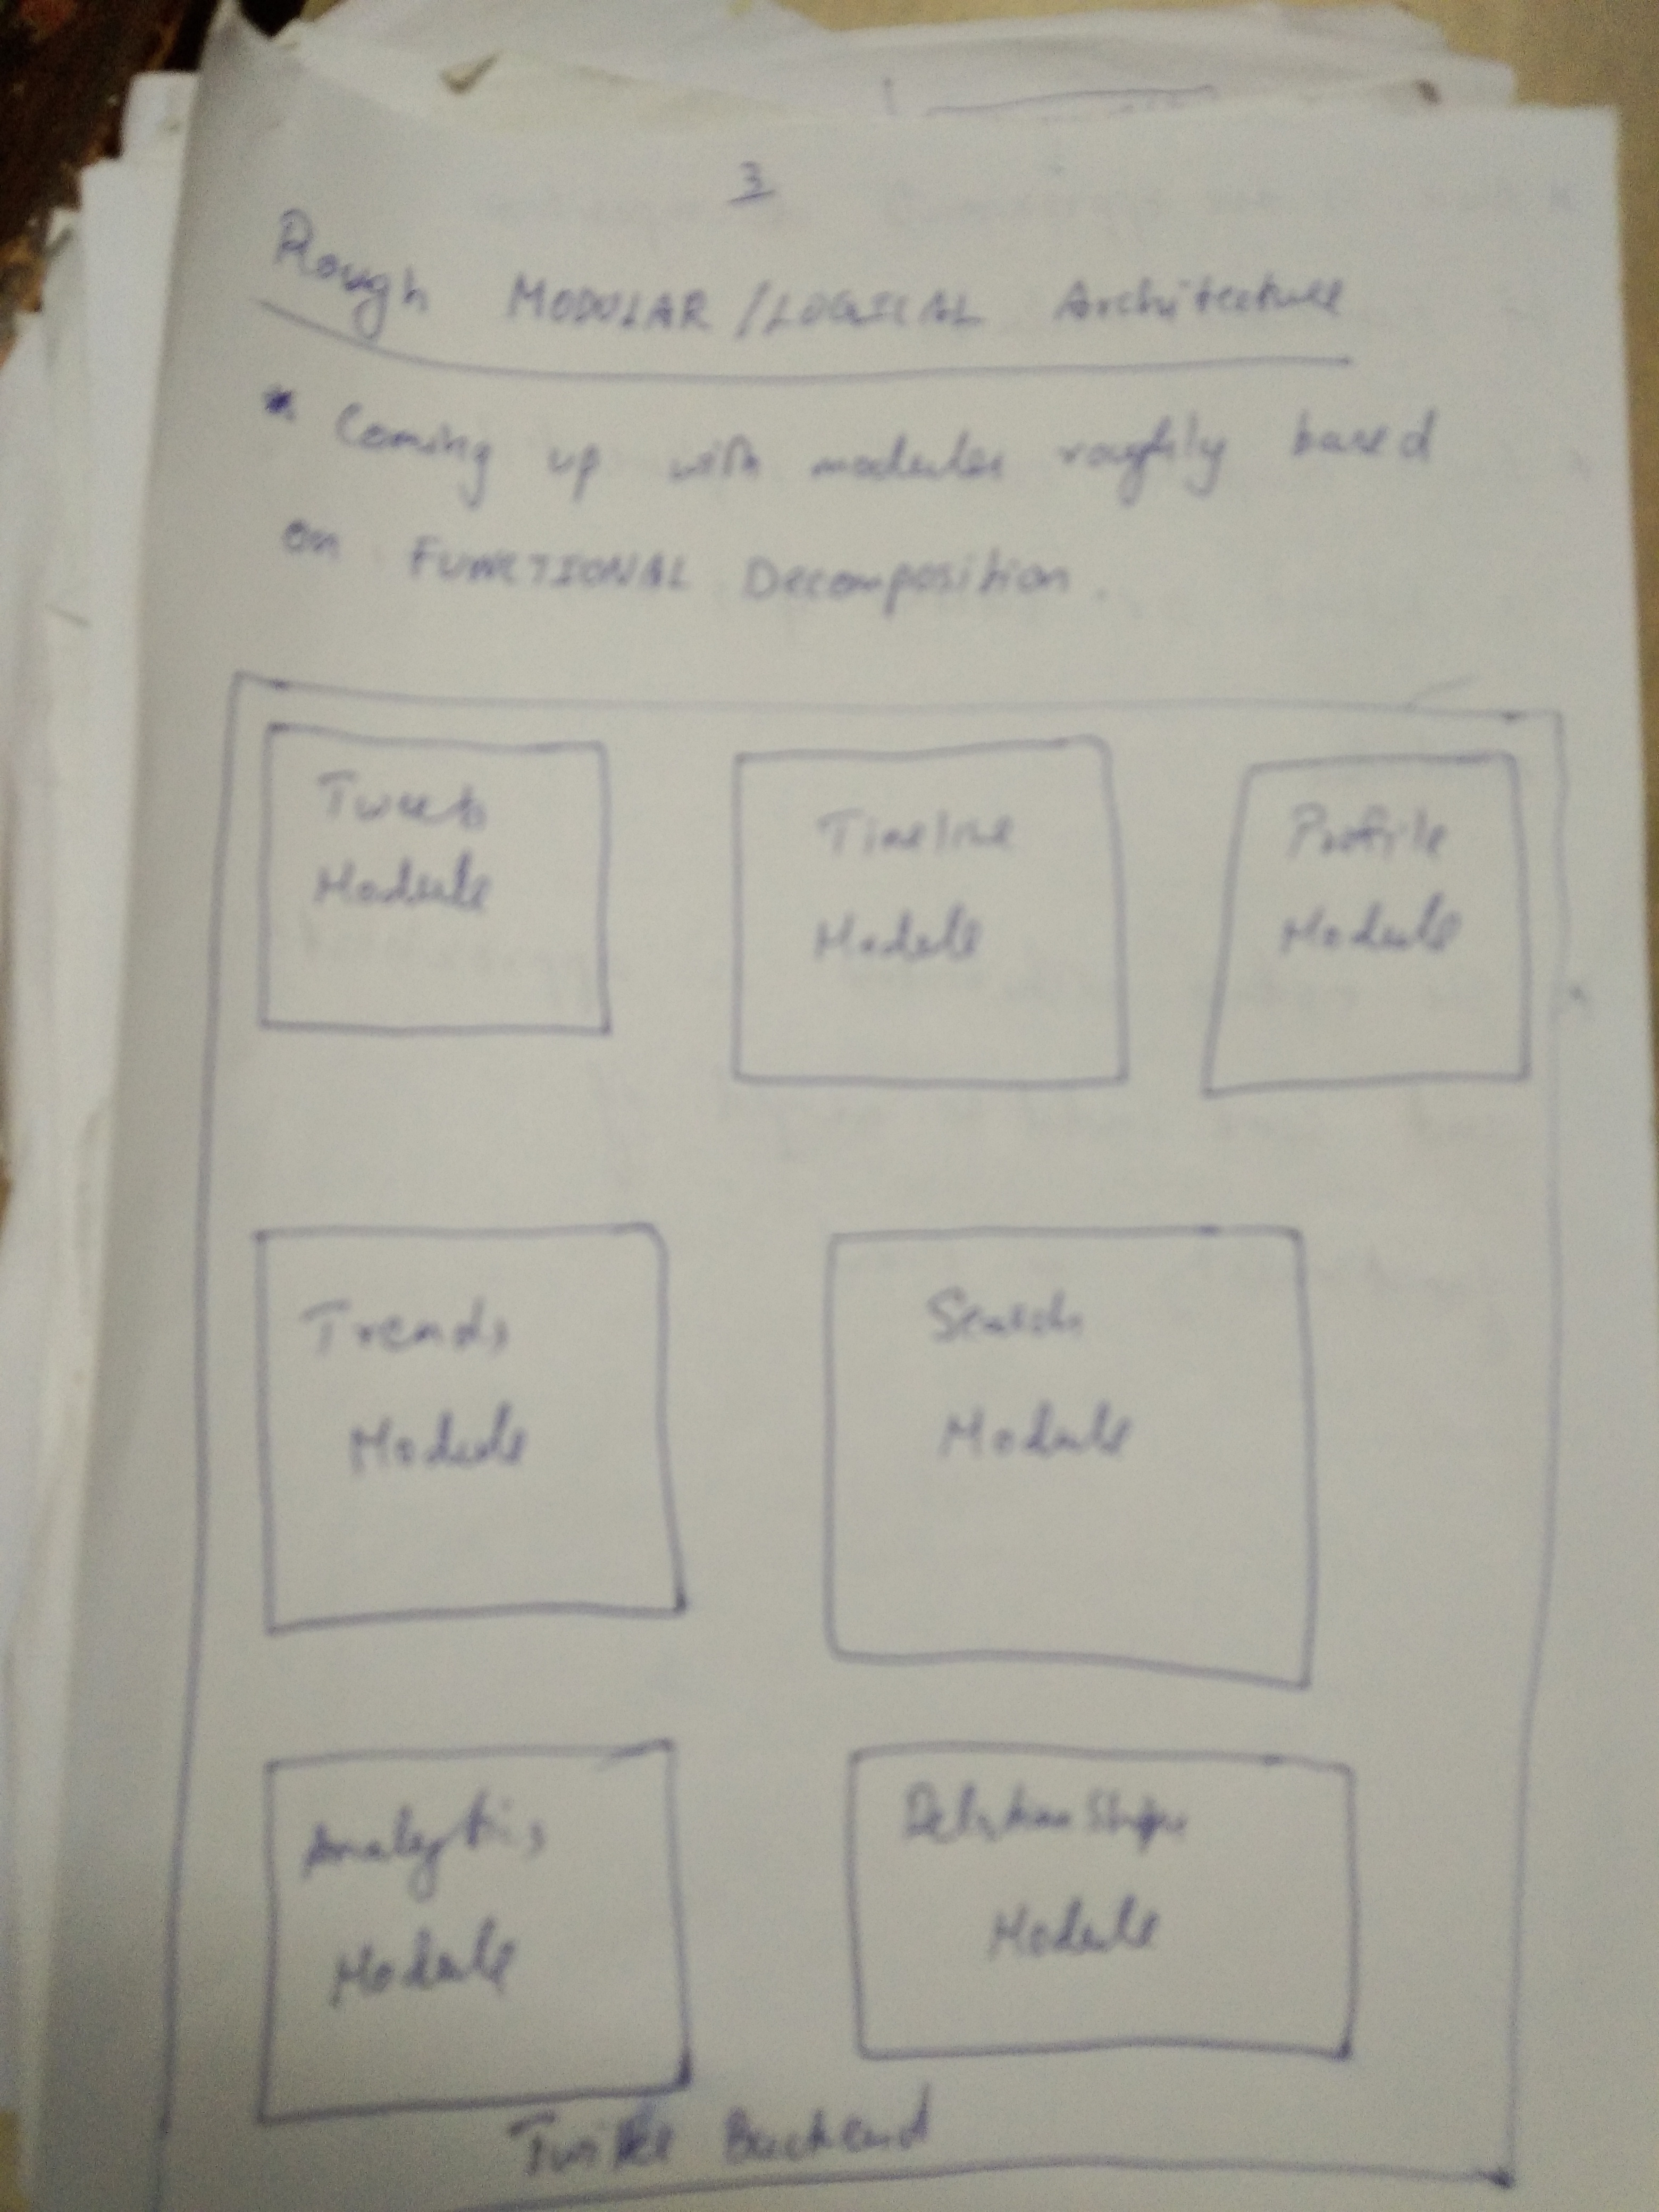 3
Rough MODULAR/LOGICAL Architecture
* Coming up with modules roughly based
on FUNCTIONAL Decomposition.
Tweets
Module
Timeline
Module
Profile
Module
Trends
Module
Search
Module
Analytics
Module
Relationships
Module
Twitter Backend